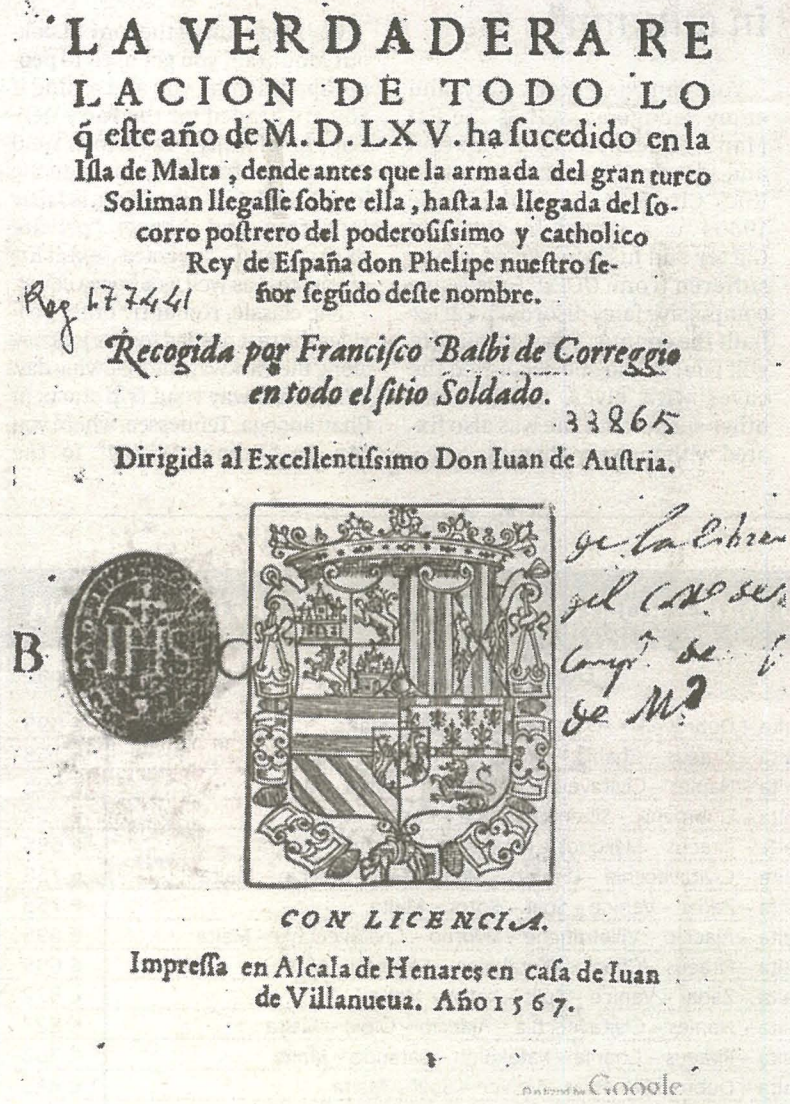 LA VERDADERA RE
LACION DE TODO LO
q̃ eſte año de M.D.LXV. ha ſucedido en la
Iſla de Malta, dende antes que la armada del gran turco
Soliman llegaſſe ſobre ella, haſta la llegada del ſo-
corro poſtrero del poderoſiſsimo y catholico
Rey de Eſpaña don Phelipe nueſtro ſe-
ñor ſegũdo deſte nombre.
Reg 177441
Recogida por Franciſco Balbi de Correggio
en todo el ſitio Soldado.
33865
Dirigida al Excellentiſsimo Don Iuan de Auſtria.
de la
del
de
de M.ᵈ
B
IHS
CON LICENCIA.
Impreſſa en Alcala de Henares en caſa de Iuan
de Villanueua. Año 1567.
Google